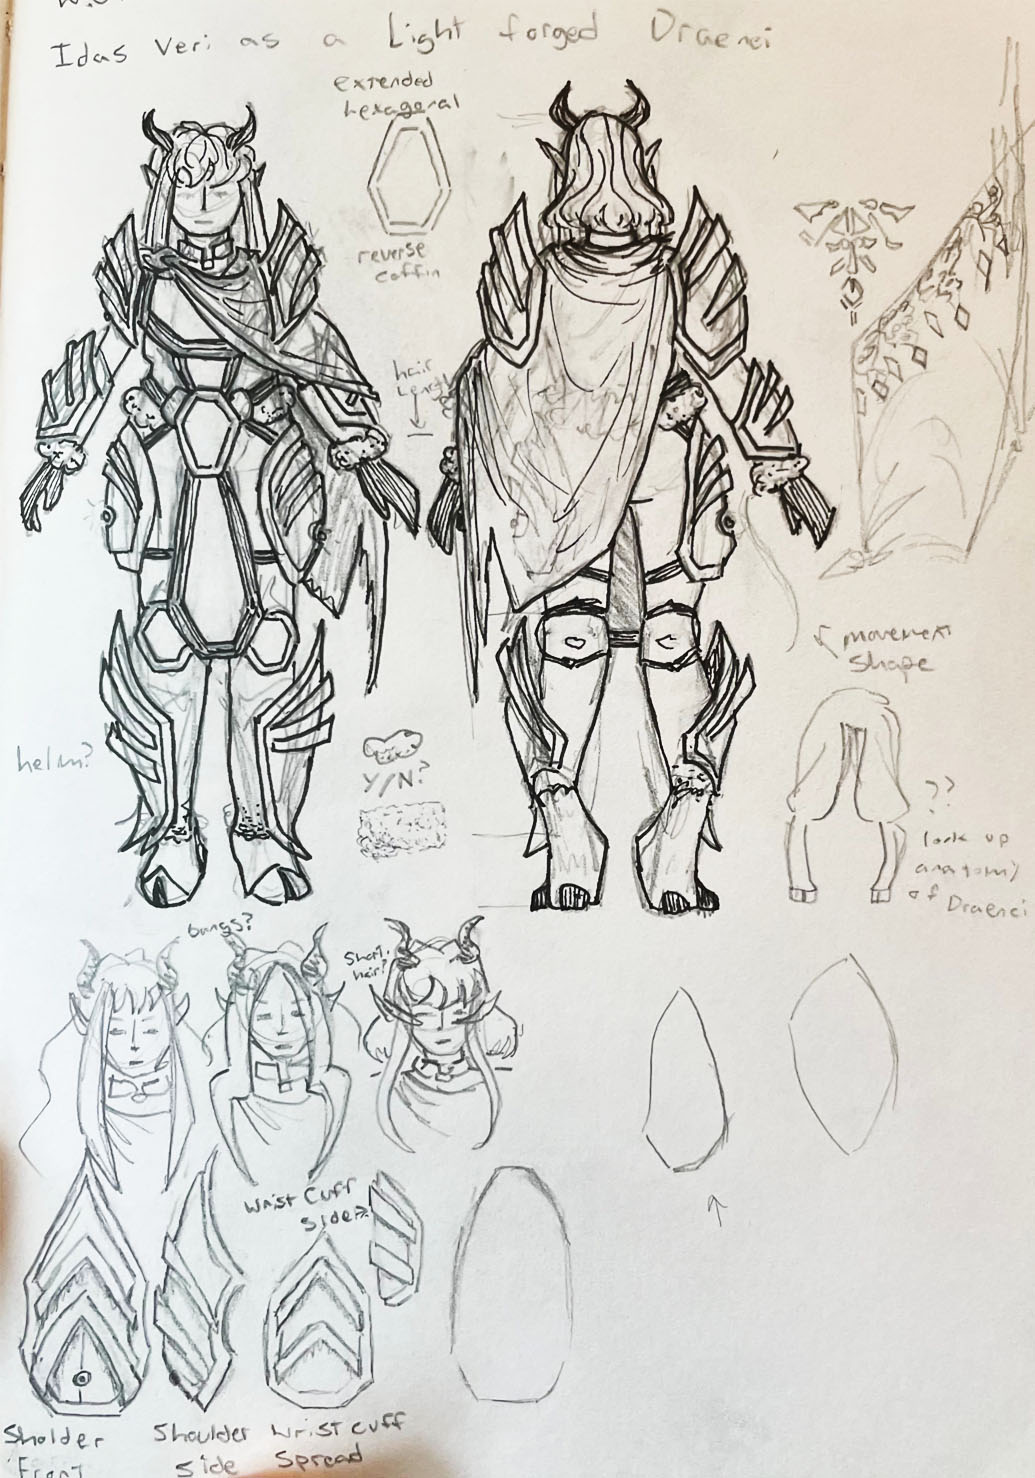 Idas Veri as a Light forged Draenei
extended
hexagonal
reverse
coffin
hair
Length
movement
shape
helm?
Y/N?
??
look up
anatomy
of Draenei
bangs?
Short
hair?
Wrist Cuff
side
Sholder
Front
Shoulder
side
Wrist cuff
Spread